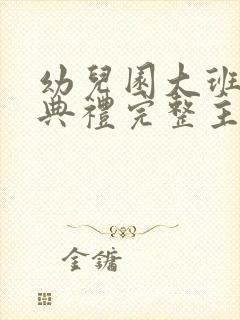 幼兒園大班
典禮完整主
金鏞